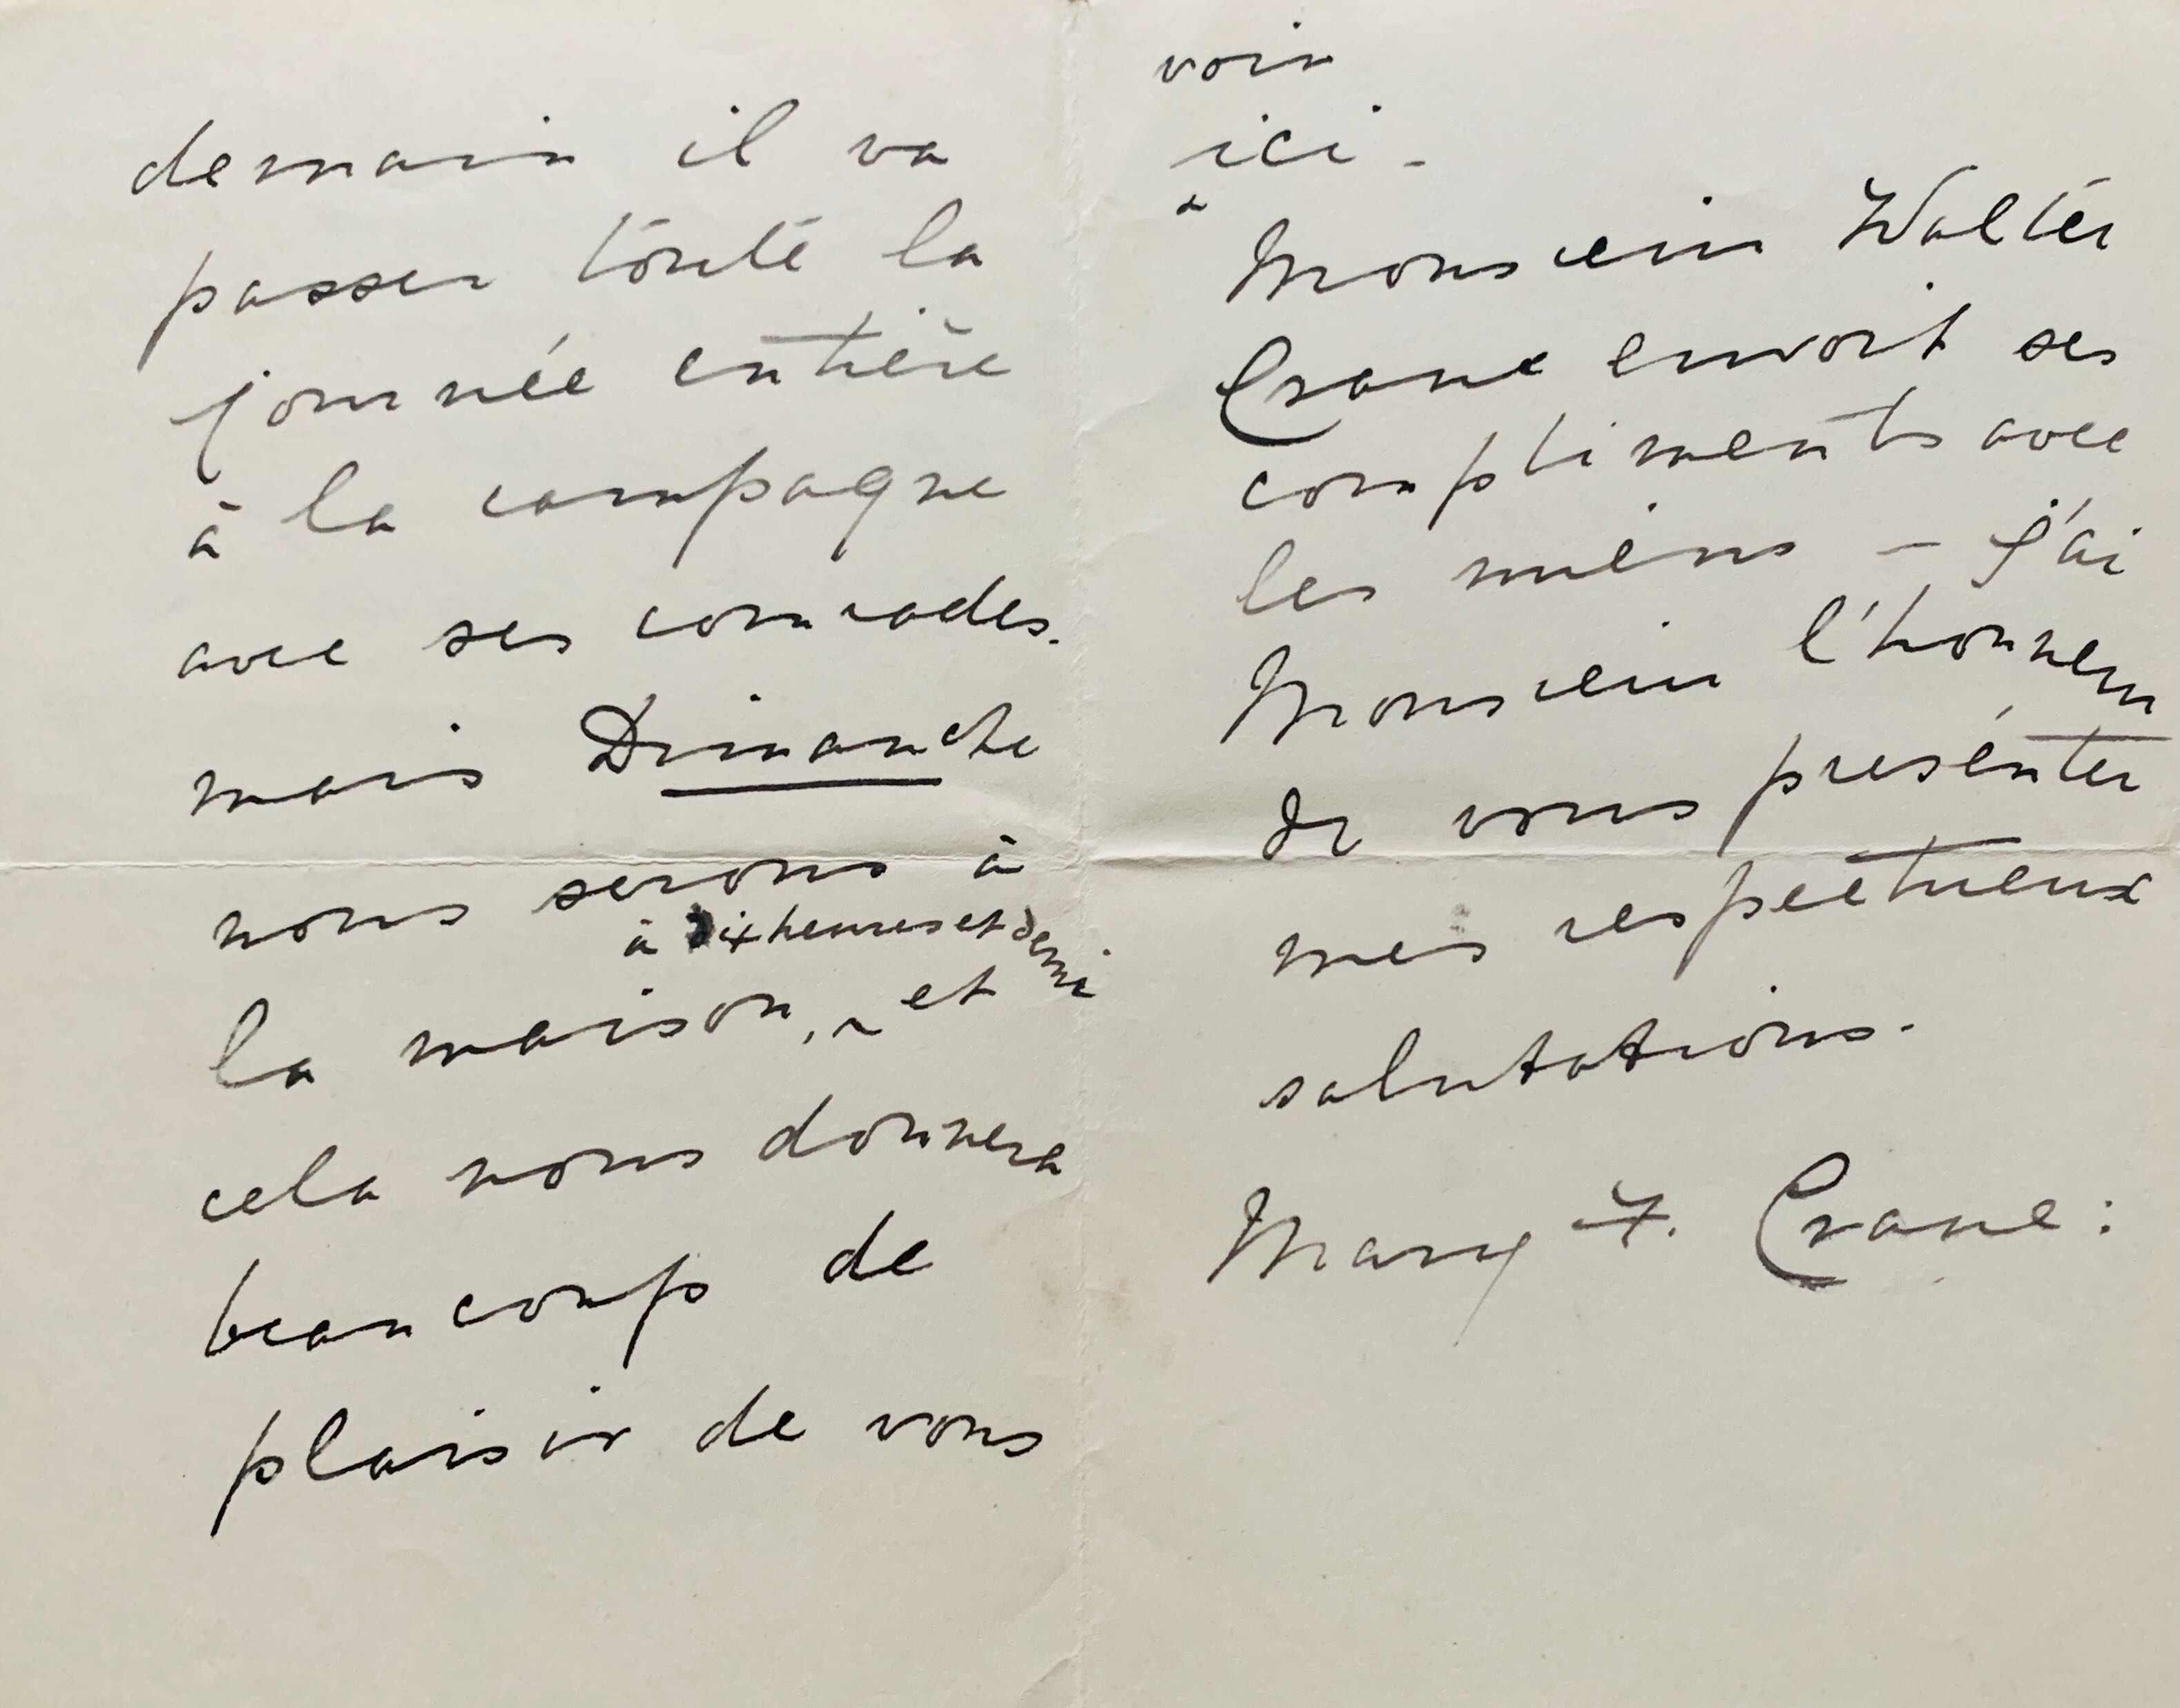 demain il va
passer toute la
journée entière
à la campagne
avec ses comrades.
mais Dimanche
nous serons à
à dix heures et demi
la maison, et
cela nous donnera
beaucoup de
plaisir de vous
voir
ici -
Monsieur Walter
Crane envoit ses
compliments avec
les miens - J'ai
Monsieur l'honneur
de vous présenter
mes respectueux
salutations.
Mary F. Crane: